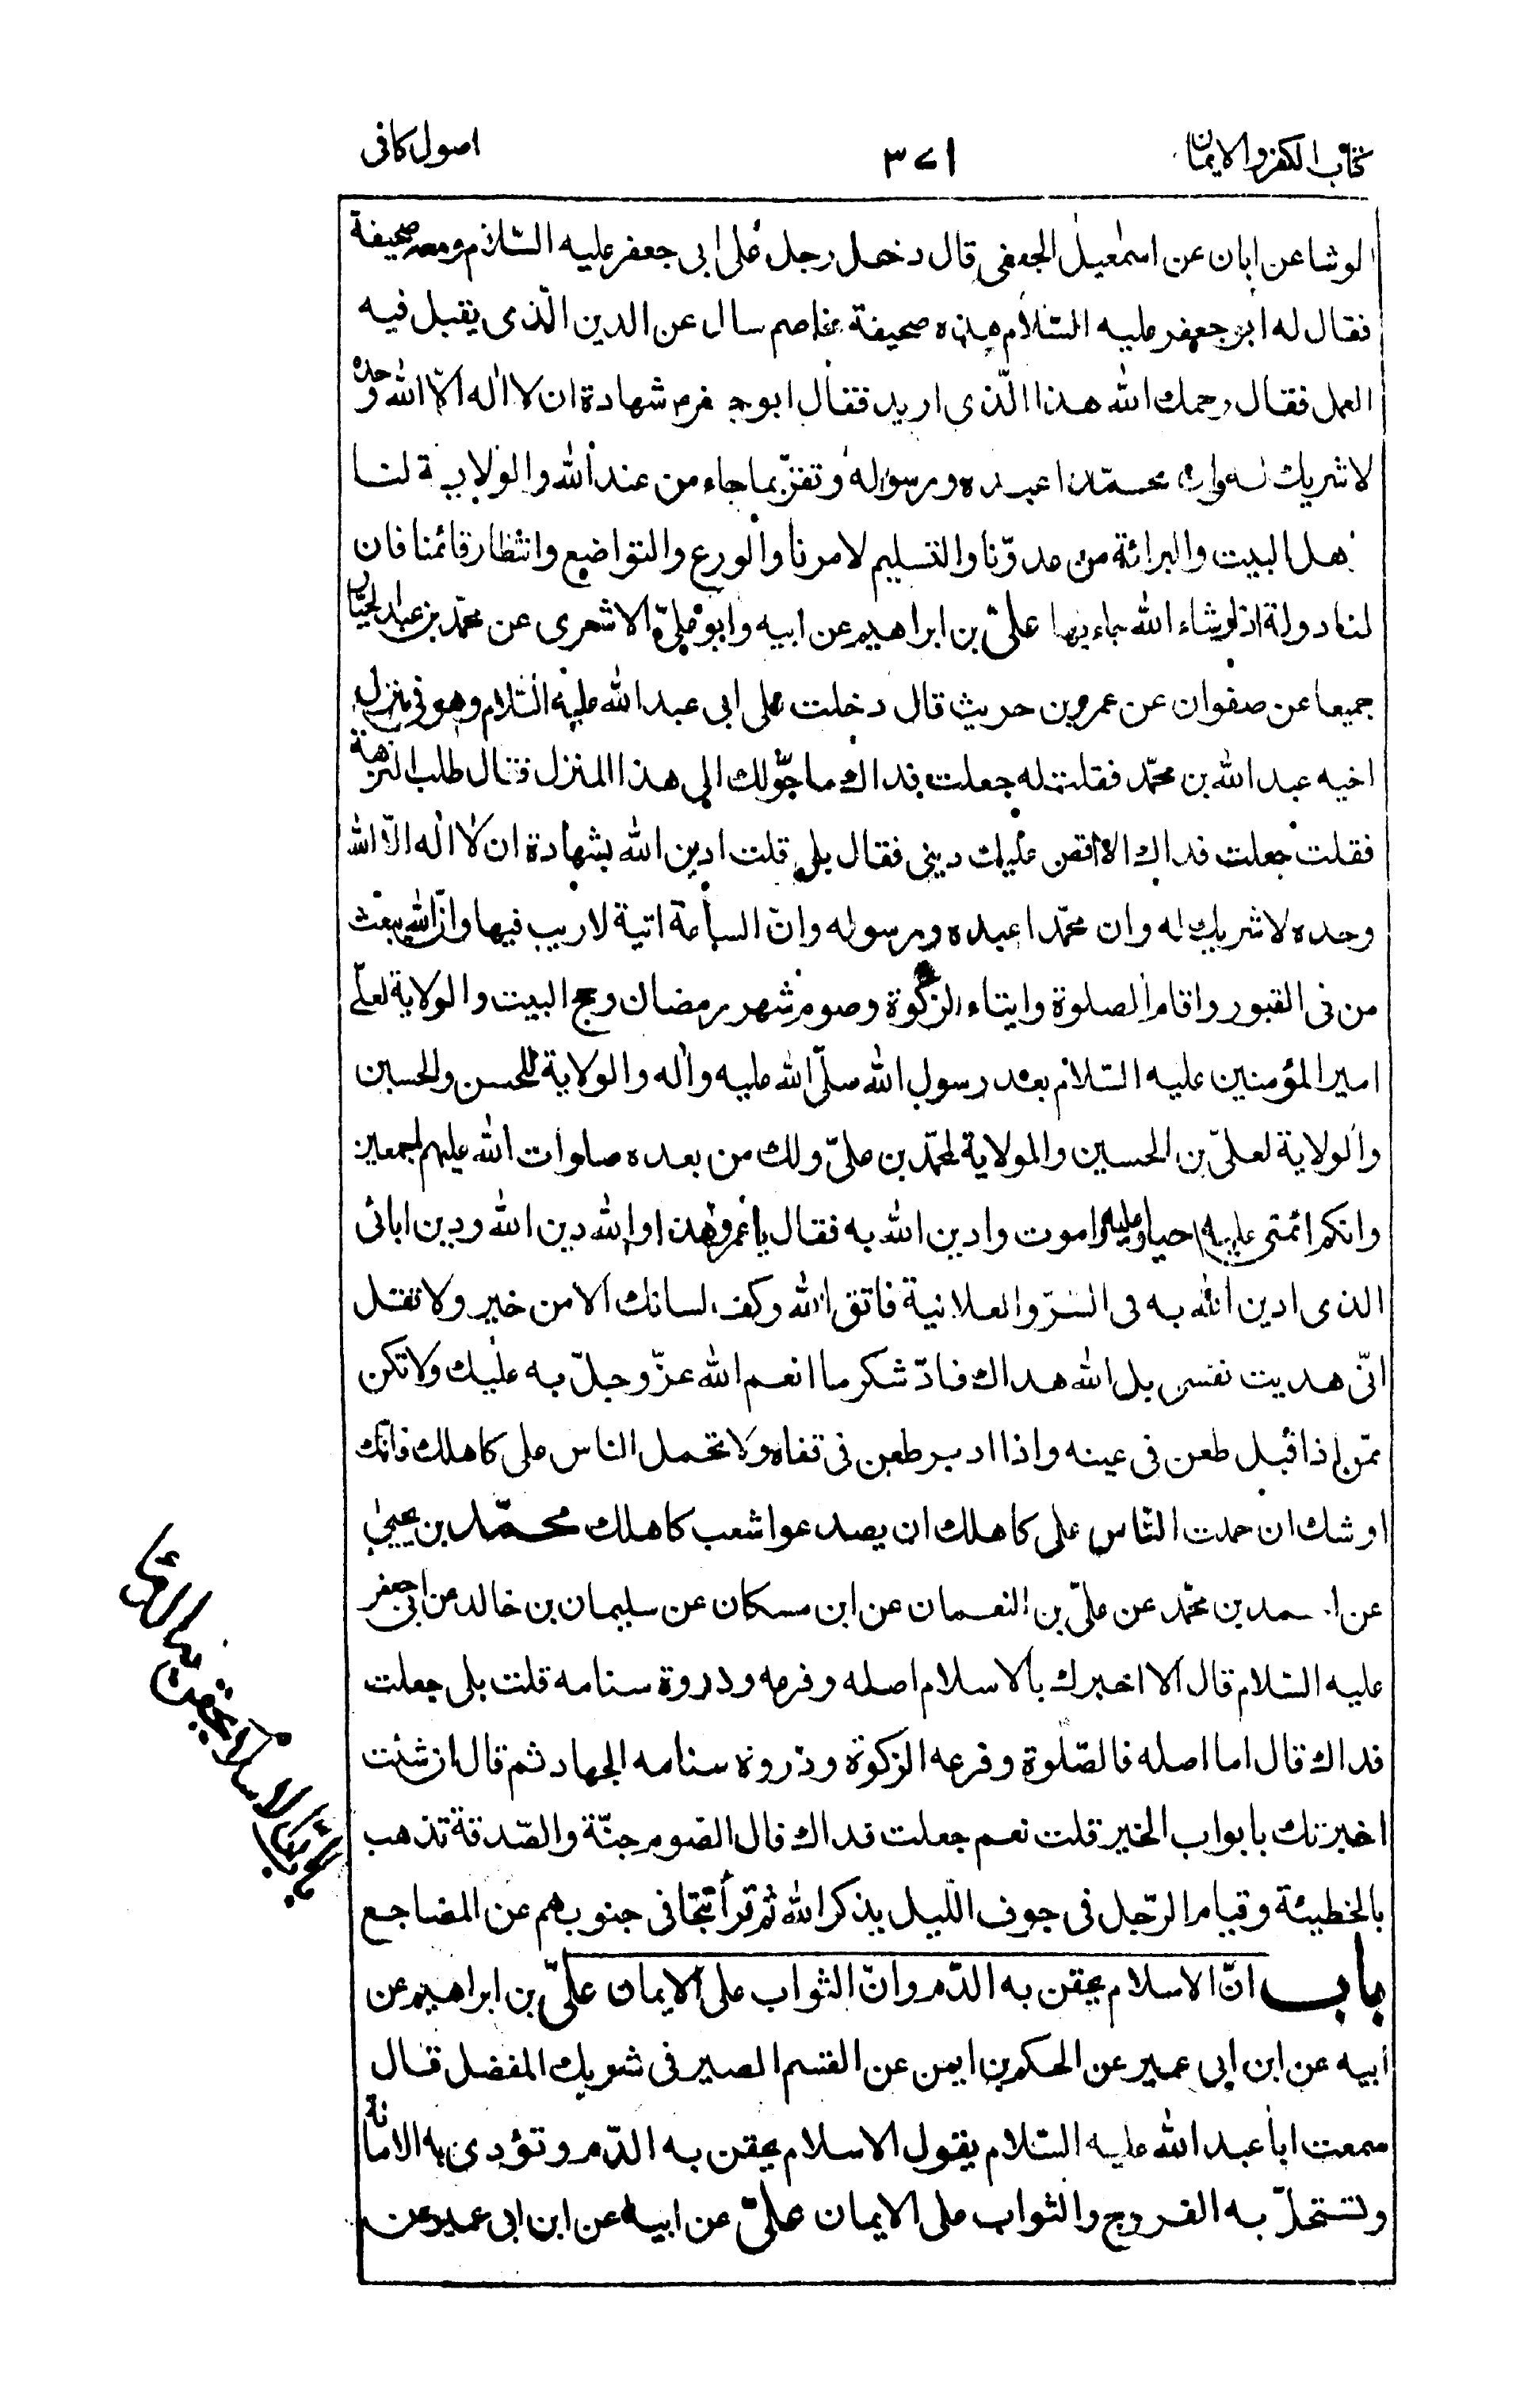 كتاب الكفر والايمان
٣٧١
اصول كافى
الوشا عن ابان عن اسمعيل الجعفى قال دخل رجل على ابى جعفر عليه السّلام ومعه صحيفة
فقال له ابو جعفر عليه السّلام هذه صحيفة مخاصم سال عن الدين الّذى يقبل فيه
العمل فقال رحمك الله هذا الّذى اريد فقال ابو جعفر م شهادة ان لا اله الّا الله وحده
لا شريك له وان محمّدا عبده ورسوله وتقرّ بما جاء من عند الله والولاية لنا
اهل البيت والبرائة من عدوّنا والتسليم لامرنا والورع والتواضع وانتظار قائمنا فان
لنا دولة اذا شاء الله جاء بها علىّ بن ابراهيم عن ابيه وابو علىّ الاشعرى عن محمّد بن عبد الجبّار
جميعا عن صفوان عن عمرو بن حريث قال دخلت على ابى عبد الله عليه السّلام وهو فى منزل
اخيه عبد الله بن محمّد فقلت له جعلت فداك ما حوّلك الى هذا المنزل فقال طلب النزهة
فقلت جعلت فداك الا اقص عليك دينى فقال بلى قلت ادين الله بشهادة ان لا اله الّا الله
وحده لا شريك له وان محمّدا عبده ورسوله وانّ الساعة اتية لا ريب فيها وانّ الله يبعث
من فى القبور واقام الصلوة وايتاء الزكوة وصوم شهر رمضان وحج البيت والولاية لعلىّ
امير المؤمنين عليه السّلام بعد رسول الله صلّى الله عليه واله والولاية للحسن والحسين
والولاية لعلىّ بن الحسين والولاية لمحمّد بن علىّ ولك من بعده صلوات الله عليهم اجمعين
وانكم ائمتى عليه احيا وعليه اموت وادين الله به فقال يا عمرو هذا والله دين الله ودين ابائى
الذى ادين الله به فى السّرّ والعلانية فاتق الله وكف لسانك الا من خير ولا تقل
انّى هديت نفسى بل الله هداك فادّ شكر ما انعم الله عزّ وجلّ به عليك ولا تكن
ممّن اذا اقبل طعن فى عينه واذا ادبر طعن فى قفاه ولا تحمل الناس على كاهلك فانّك
اوشك ان حملت النّاس على كاهلك ان يصدعوا شعب كاهلك محمّد بن يحيى
عن احمد بن محمّد عن علىّ بن النعمان عن ابن مسكان عن سليمان بن خالد عن ابى جعفر
عليه السّلام قال الا اخبرك بالاسلام اصله وفرعه وذروة سنامه قلت بلى جعلت
فداك قال اما اصله فالصّلوة وفرعه الزكوة وذروة سنامه الجهاد ثم قال ان شئت
اخبرتك بابواب الخير قلت نعم جعلت فداك قال الصوم جنّة والصّدقة تذهب
بالخطيئة وقيام الرّجل فى جوف اللّيل يذكر الله ثم قرأ تتجافى جنوبهم عن المضاجع
باب انّ الاسلام يحقن به الدّم وانّ الثواب على الايمان علىّ بن ابراهيم عن
ابيه عن ابن ابى عمير عن الحكم بن ايمن عن القسم الصيرفى شريك المفضل قال
سمعت ابا عبد الله عليه السّلام يقول الاسلام يحقن به الدّم وتؤدى به الامانة
وتستحلّ به الفروج والثواب على الايمان علىّ عن ابيه عن ابن ابى عمير عن